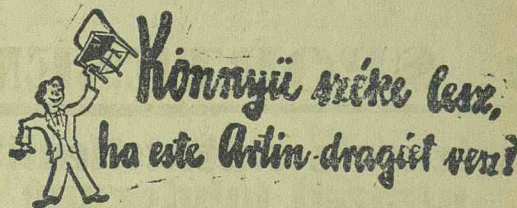 Könnyü széke lesz,
ha este Artin-dragét vesz!